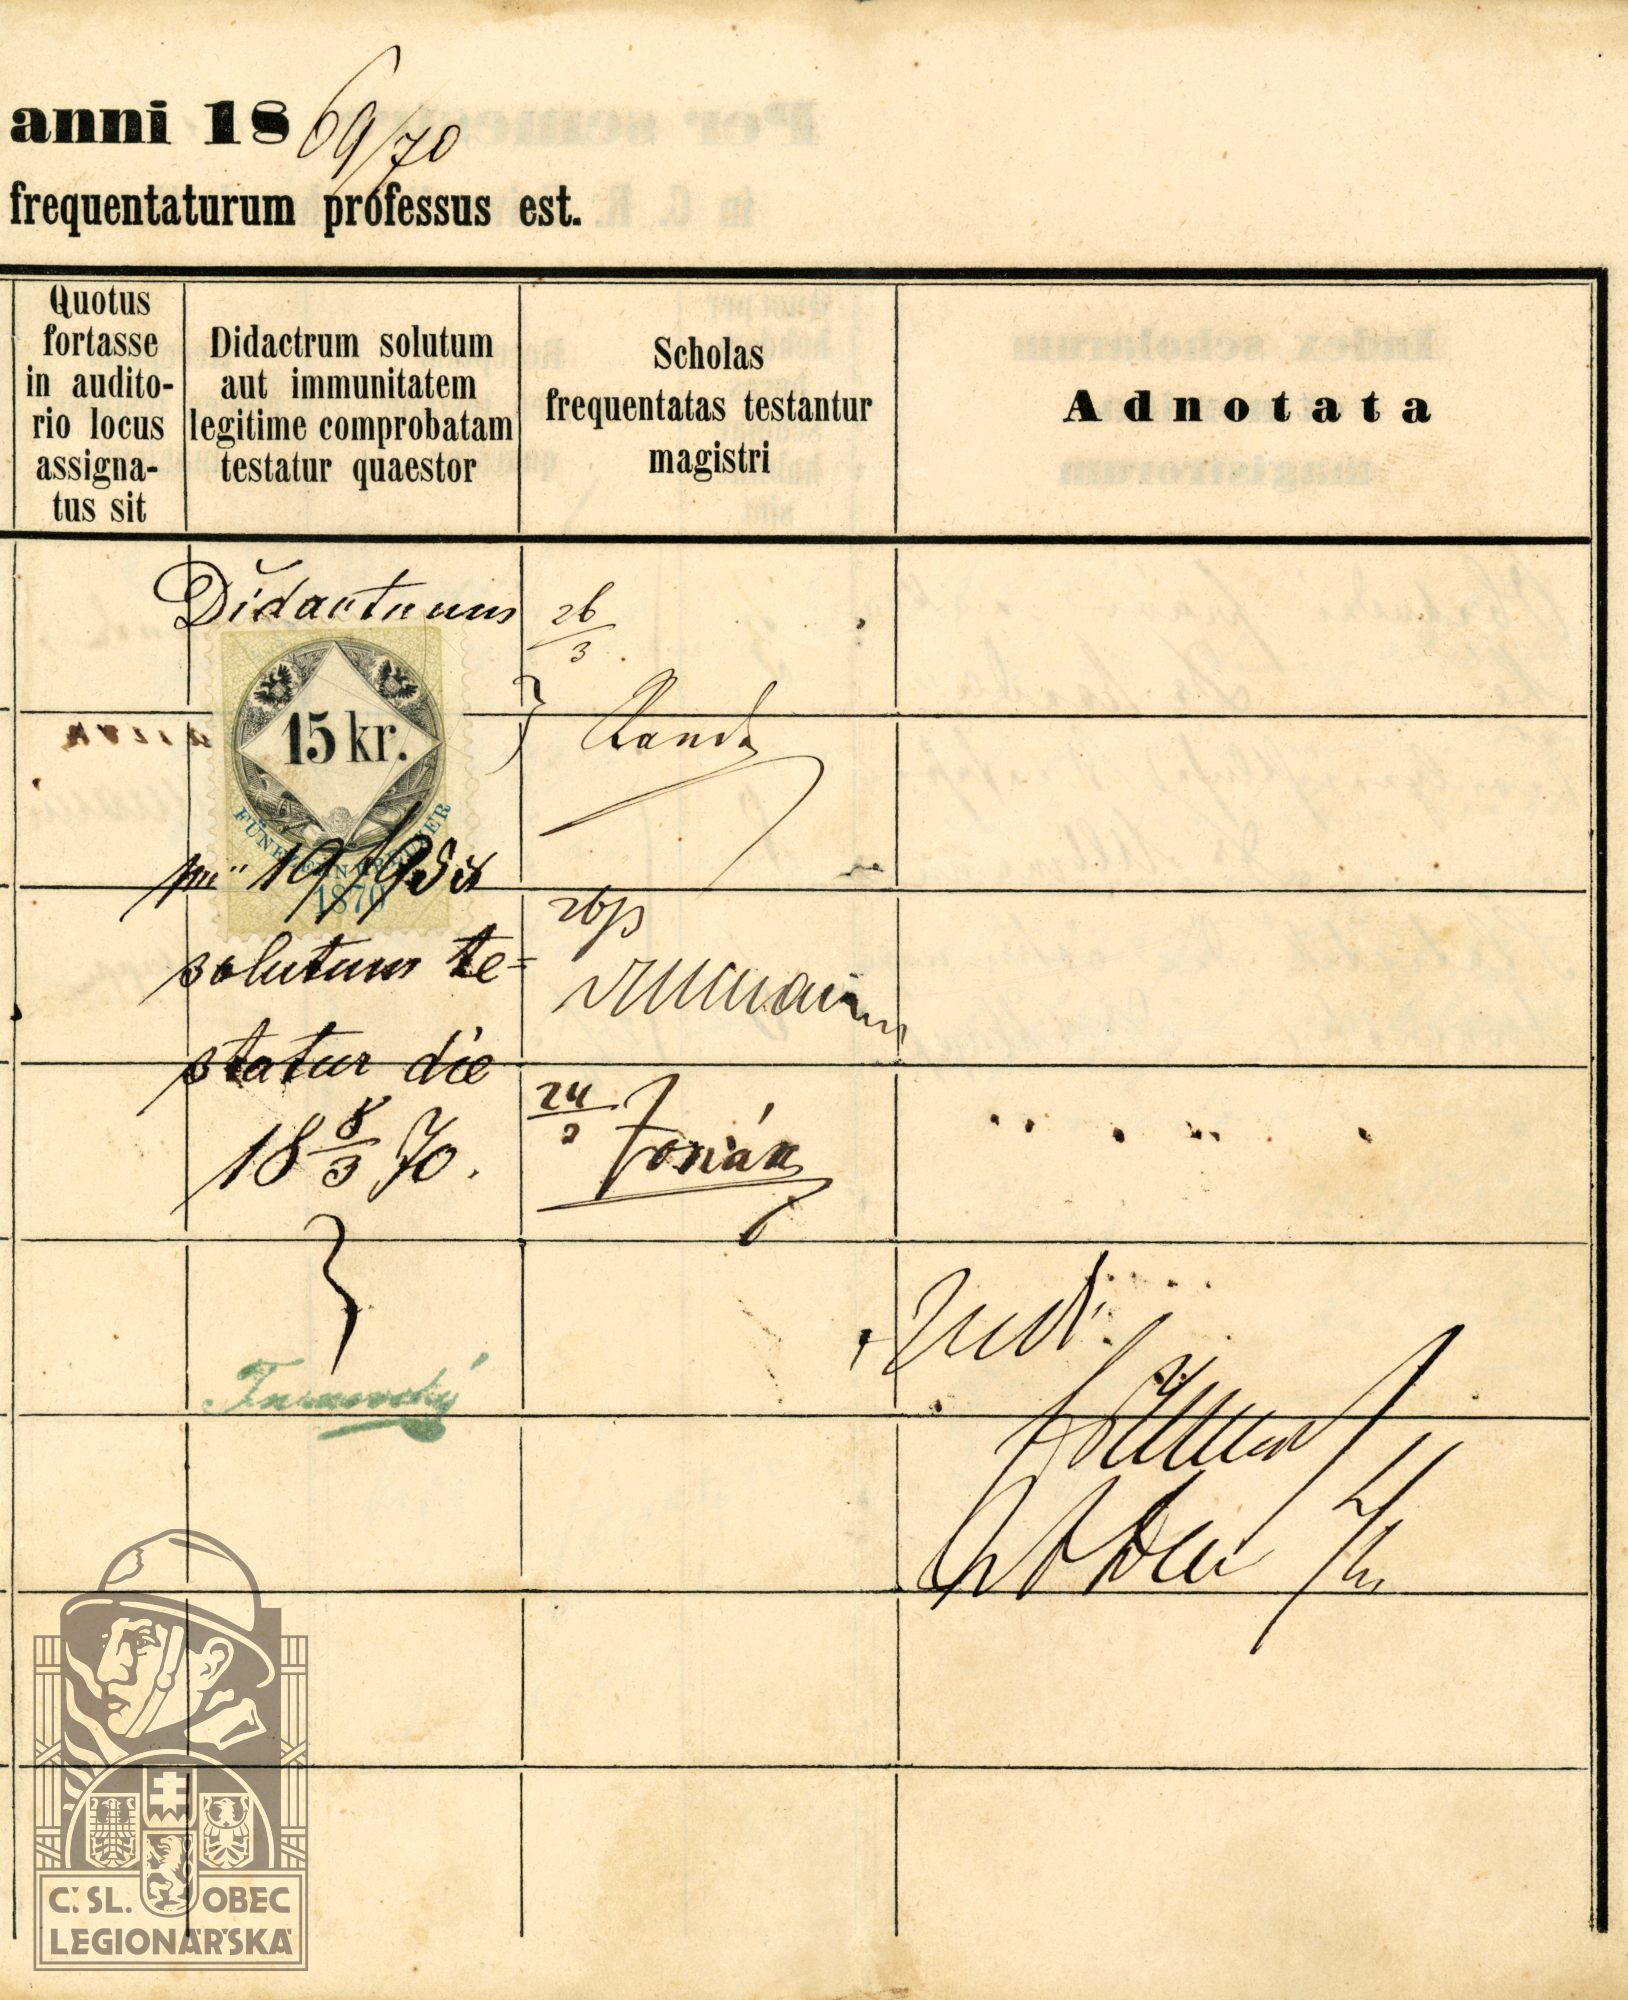 anni 1869/70
frequentaturum professus est.
Quotus
fortasse
in audito-
rio locus
assigna-
tus sit
Didactrum solutum
aut immunitatem
legitime comprobatam
testatur quaestor
Scholas
frequentatas testantur
magistri
Adnotata
Didactrum
15 kr.
FÜNFZEHN KREUZER
1870
solutum te=
statur die
18 8/3 70.
26/3
Randa
24
Turnovský
Č. SL. OBEC
LEGIONÁŘSKÁ